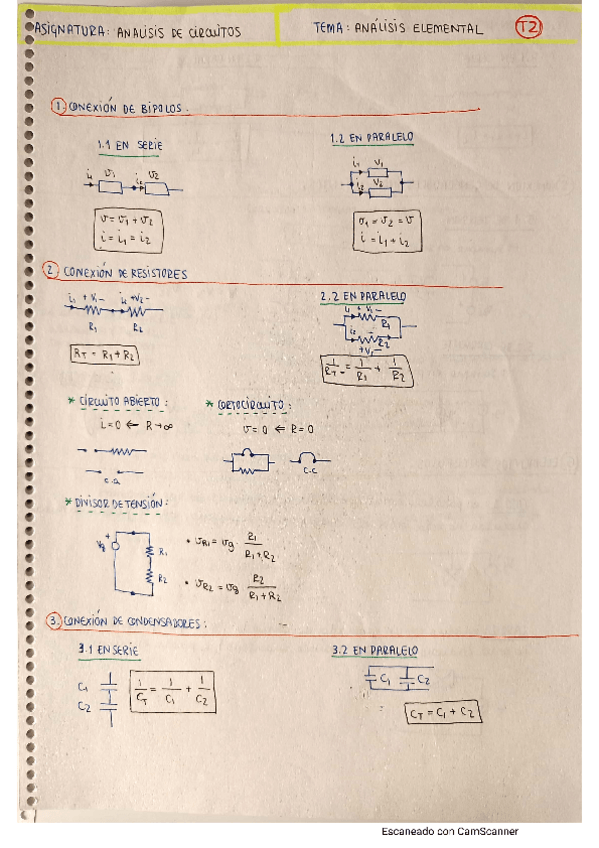 ASIGNATURA: ANALISIS DE CIRCUITOS
TEMA: ANÁLISIS ELEMENTAL
T2
1. CONEXIÓN DE BIPOLOS.
1.1 EN SERIE
1.2 EN PARALELO
i₁ v₁ i₂ v₂
i₁ v₁
i₂ v₂
v = v₁ + v₂
i = i₁ = i₂
v₁ = v₂ = v
i = i₁ + i₂
2. CONEXIÓN DE RESISTORES
i₁ + v₁ - i₂ + v₂ -
R₁ R₂
RT = R₁ + R₂
2.2 EN PARALELO
i₁ + v₁ -
R₁
i₂ R₂
+ v₂ -
1/RT = 1/R₁ + 1/R₂
* CIRCUITO ABIERTO:
i = 0 ← R→∞
C.A
* CORTOCIRCUITO:
v = 0 ← R = 0
C.C
* DIVISOR DE TENSIÓN:
vg + R₁
R₂
• vR1 = vg · R₁/(R₁+R₂)
• vR2 = vg R₂/(R₁+R₂)
3. CONEXIÓN DE CONDENSADORES:
3.1 EN SERIE
3.2 EN PARALELO
C₁
C₂
1/CT = 1/C₁ + 1/C₂
C₁ C₂
CT = C₁ + C₂
Escaneado con CamScanner